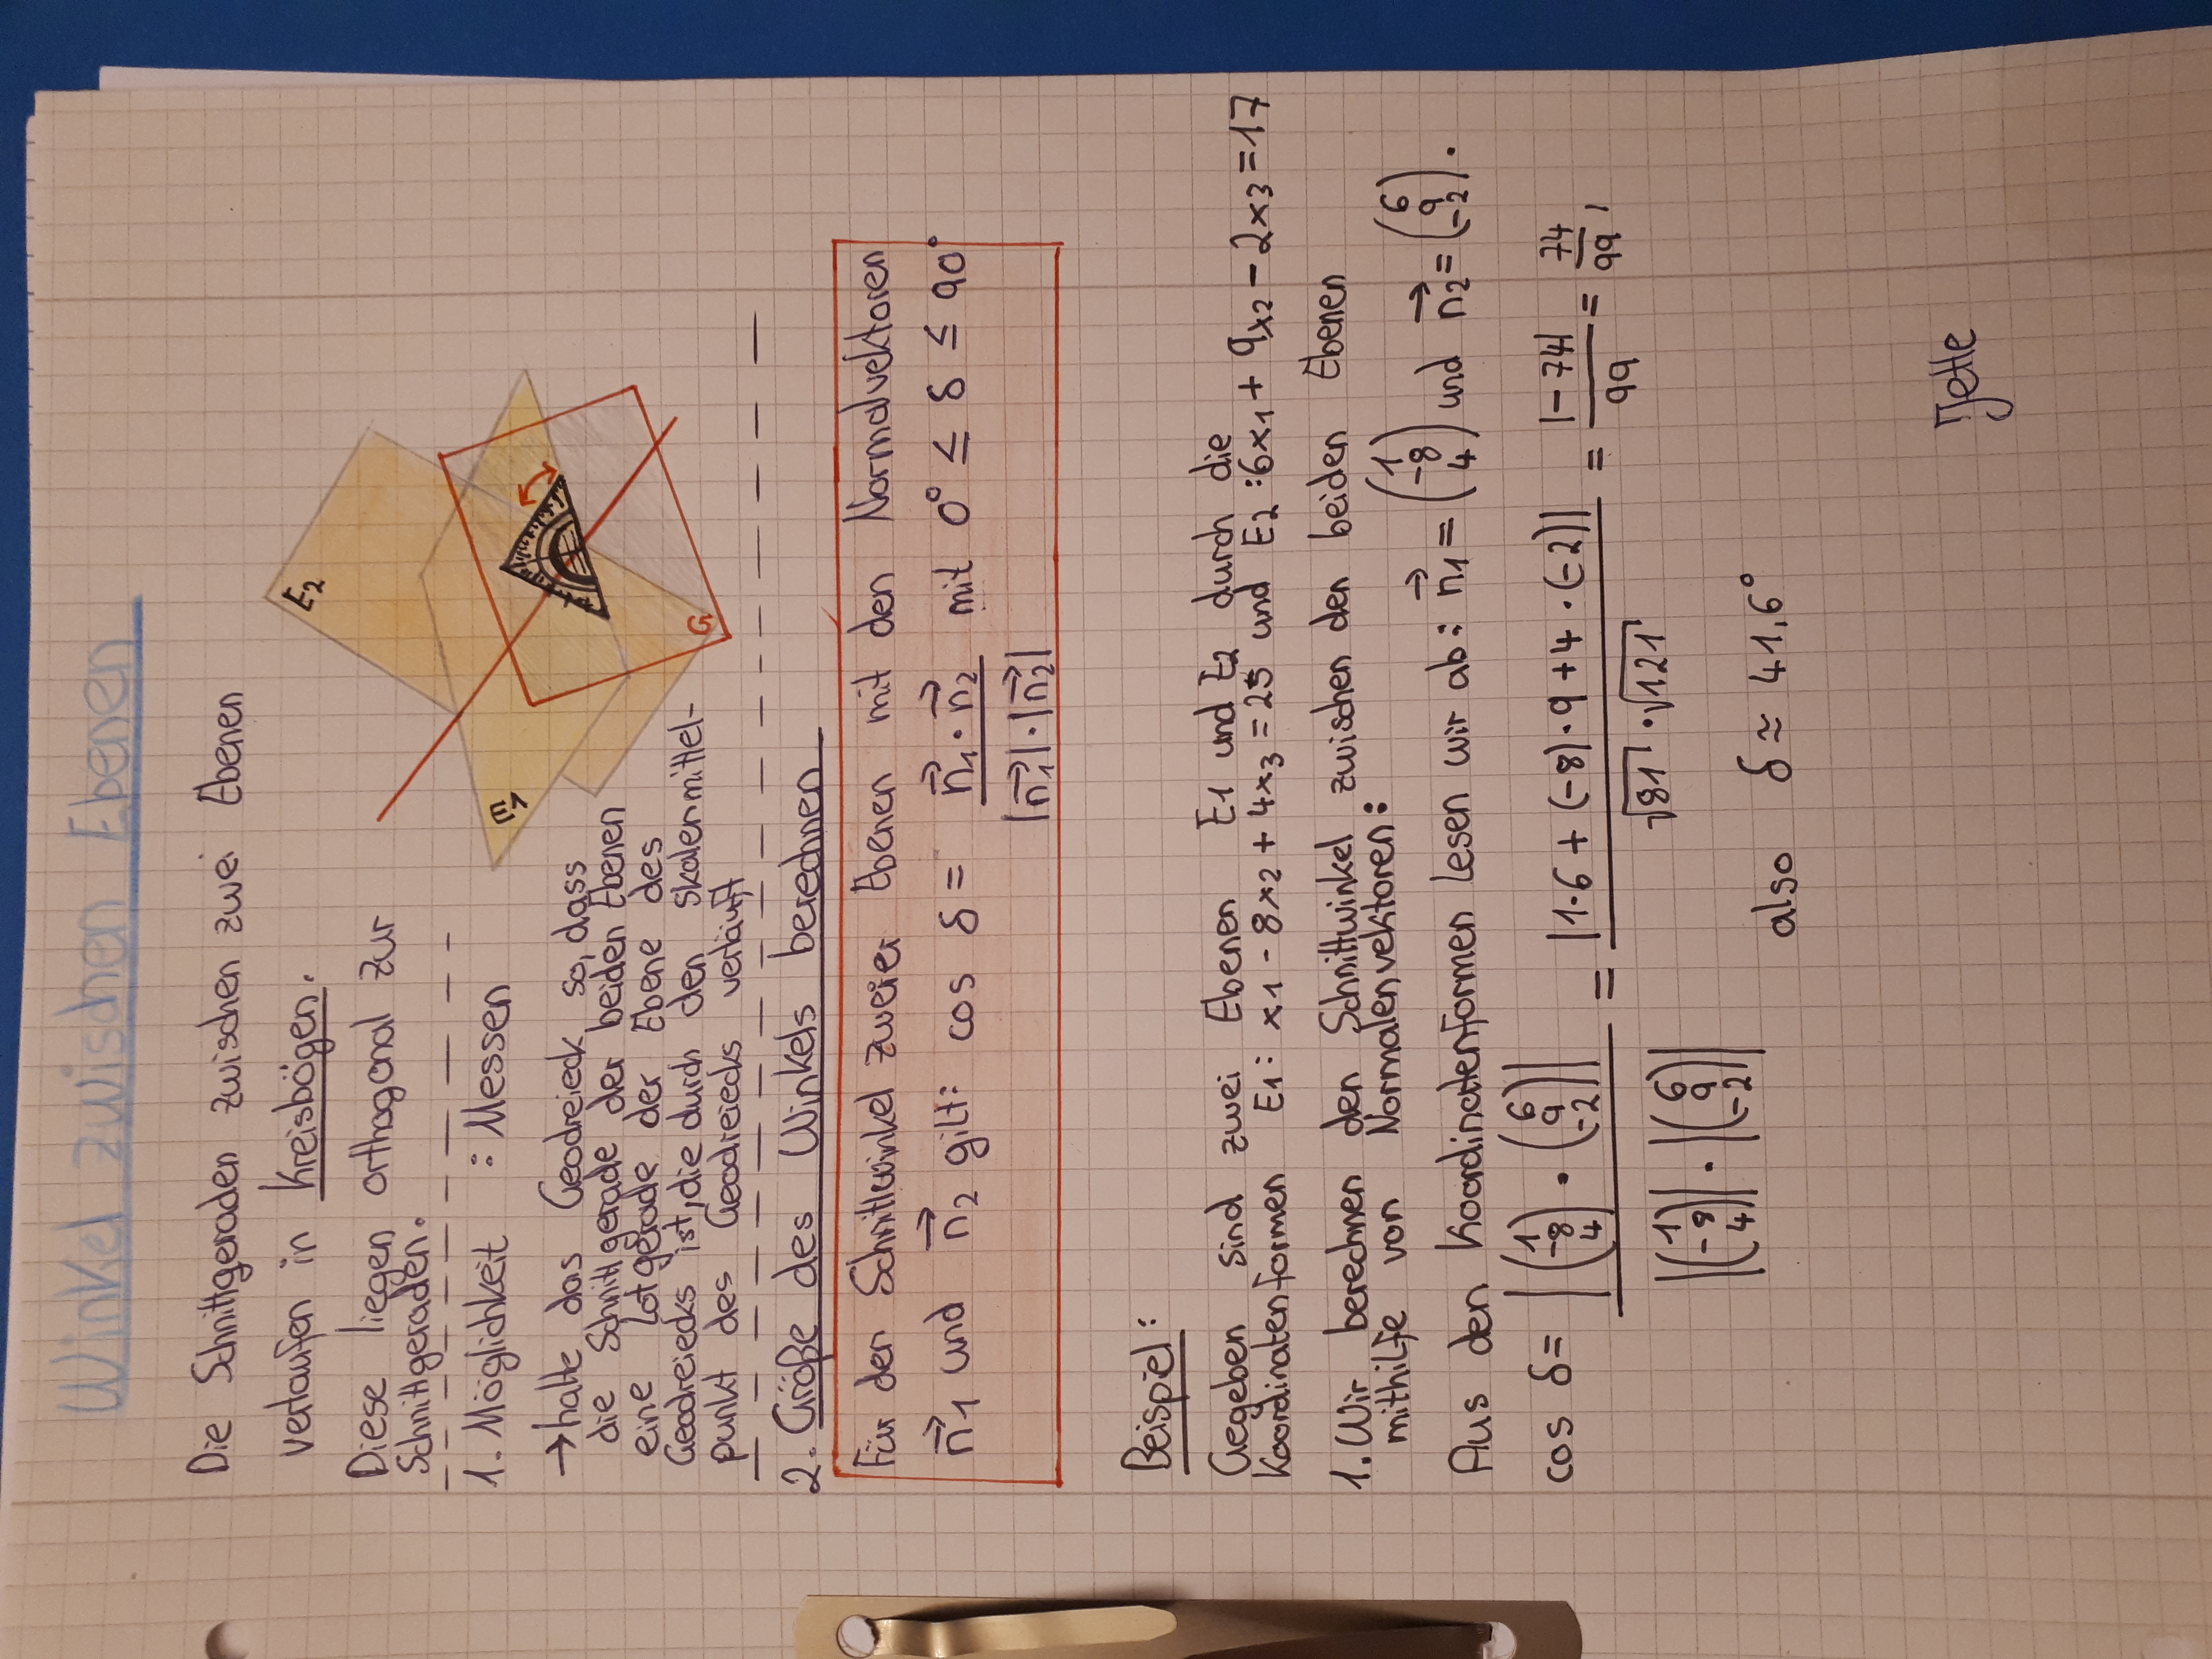 Winkel zwischen Ebenen
Die Schnittgeraden zwischen zwei Ebenen
verlaufen in Kreisbögen.
Diese liegen orthogonal zur
Schnittgeraden.
1. Möglichkeit : Messen
→ halte das Geodreieck so, dass
die Schnittgerade der beiden Ebenen
eine Lotgerade der Ebene des
Geodreiecks ist, die durch den Skalenmittel-
punkt des Geodreiecks verläuft
E2
E1
G
2. Größe des Winkels berechnen
Für der Schnittwinkel zweier Ebenen mit den Normalvektoren
n⃗1 und n⃗2 gilt: cos δ = n⃗1 · n⃗2 / |n⃗1| · |n⃗2| mit 0° ≤ δ ≤ 90°
Beispiel:
Gegeben sind zwei Ebenen E1 und E2 durch die
Koordinatenformen E1: x1 - 8x2 + 4x3 = 25 und E2: 6x1 + 9x2 - 2x3 = 17
1. Wir berechnen den Schnittwinkel zwischen den beiden Ebenen
mithilfe von Normalenvektoren:
Aus den Koordinatenformen lesen wir ab: n⃗1 = (1 -8 4) und n⃗2 = (6 9 -2).
cos δ = |(1 -8 4) · (6 9 -2)| / |(1 -8 4)| · |(6 9 -2)| = |1·6 + (-8)·9 + 4·(-2)| / √81 · √121 = |-74| / 99 = 74/99,
also δ ≈ 41,6°
Jette